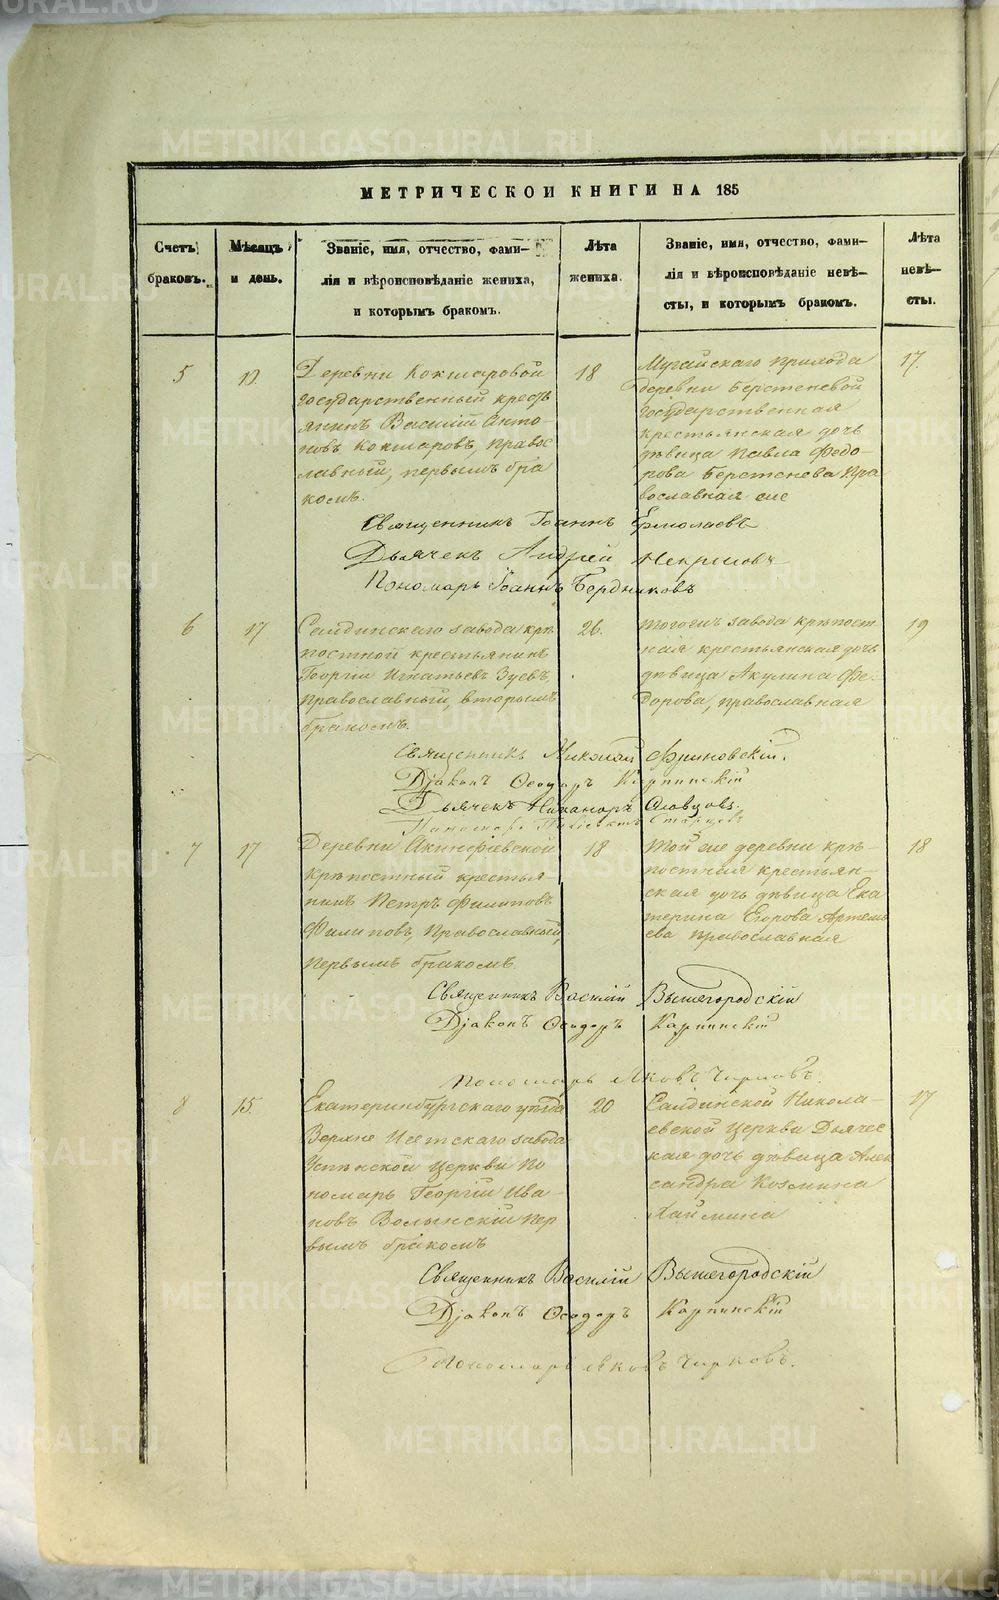 МЕТРИЧЕСКОЙ КНИГИ НА 185
Счетъ браковъ.
Мѣсяцъ и день.
Званіе, имя, отчество, фами-
лія и вѣроисповѣданіе жениха,
и которымъ бракомъ.
Лѣта жениха.
Званіе, имя, отчество, фами-
лія и вѣроисповѣданіе невѣ-
сты, и которымъ бракомъ.
Лѣта невѣ-
сты.
5
Деревни Кокшаровой
государственный крест
янинъ Василій Анто-
новъ Кокшаровъ, правос
лавный, первымъ бра
комъ.
18
Мугайскаго прихода
деревни Берстеневой
государственная
крестьянская дочь
дѣвица Павла Федо-
рова Берстенева пра
вославная
17.
Священникъ Іоаннъ Ермолаевъ
Дьячекъ Андрей Некрасовъ
Пономарь Іоаннъ Бердниковъ
6
17
Салдинскаго завода крѣ
постной крестьянинъ
Георгій Игнатьевъ Зуевъ,
православный, вторымъ
бракомъ.
26.
Тогожъ завода крѣпост
ная крестьянская дочь
дѣвица Акулина Фе-
дорова, православная
19
Священникъ Николай
Діаконъ Ѳеодоръ Карпинскій
Дьячекъ Никаноръ Словцовъ.
7
17
Деревни Акинфіевской
крѣпостный крестья
нинъ Петръ Филиповъ
Филиповъ, Православный,
первымъ бракомъ.
18
Той же деревни крѣ-
постная крестьян-
ская дочь дѣвица Ека
терина Егорова Артемь
ева православная
18
Священникъ Василій Вышегородскій
Діаконъ Ѳеодоръ Карпинскій
Пономарь Яковъ Чирковъ.
8
15.
Екатеринбургскаго уѣзда
Верхне Исетскаго завода
Успенской церкви по
номарь Георгій Ива-
новъ Волынскій пер
вымъ бракомъ
20
Салдинской Никола-
евской церкви Дьячес
кая дочь дѣвица Алек
сандра Козмина
Хаймина
17
Священникъ Василій Вышегородскій
Діаконъ Ѳеодоръ Карпинскій
Пономарь Яковъ Чирковъ.
METRIKI.GASO-URAL.RU